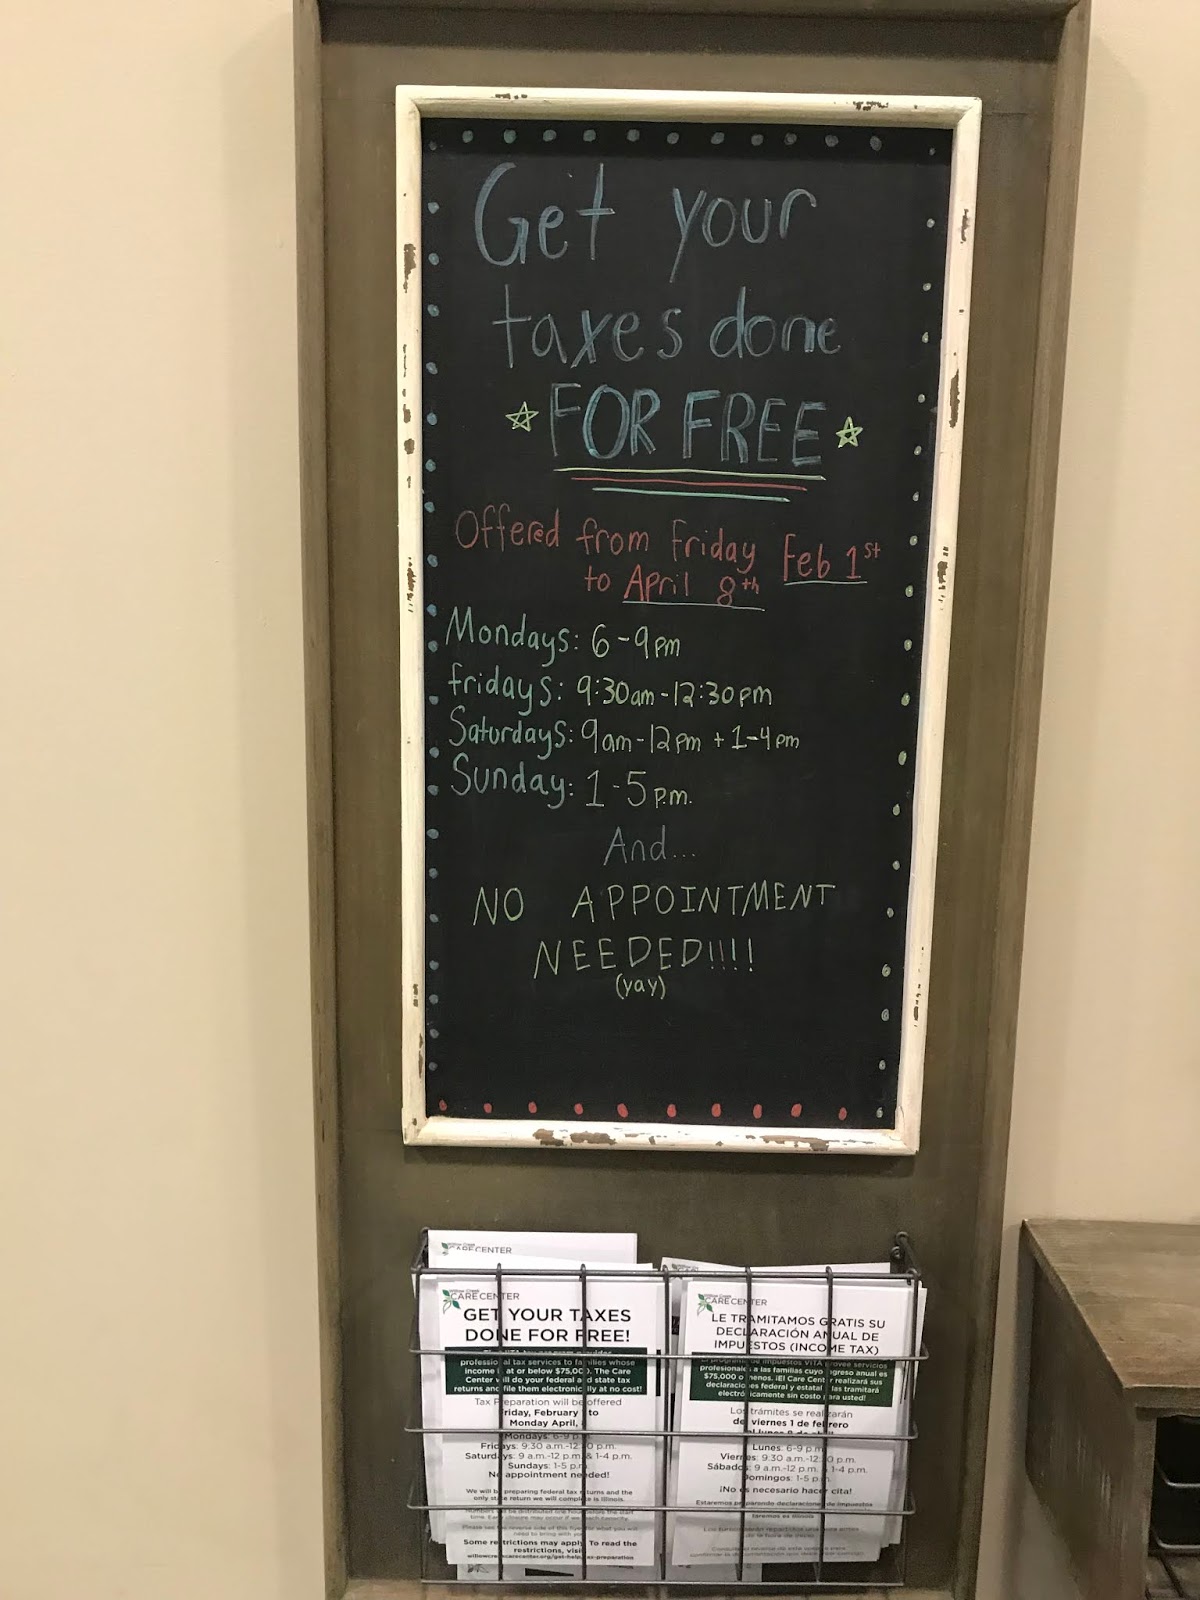 Get your
taxes done
FOR FREE
Offered from Friday Feb 1st
to April 8th
Mondays: 6-9pm
fridays: 9:30am-12:30pm
Saturdays: 9am-12pm + 1-4pm
Sunday: 1-5 p.m.
And...
NO APPOINTMENT
NEEDED!!!!
(yay)
CARE CENTER
Willow Creek
CARE CENTER
GET YOUR TAXES
DONE FOR FREE!
professional tax services to families whose
income is at or below $75,000. The Care
Center will do your federal and state tax
returns and file them electronically at no cost!
Tax Preparation will be offered
Friday, February 1 to
Monday April,
Mondays: 6-9 p.m.
Fridays: 9:30 a.m.-12:30 p.m.
Saturdays: 9 a.m.-12 p.m. & 1-4 p.m.
Sundays: 1-5 p.m.
No appointment needed!
We will be preparing federal tax returns and the
only state return we will complete is Illinois.
Please see the reverse side of this flyer for what you will
need to bring with you.
Some restrictions may apply. To read the
restrictions, visit
willowcreekcarecenter.org/get-help/tax-preparation
Willow Creek
CARE CENTER
LE TRAMITAMOS GRATIS SU
DECLARACIÓN ANUAL DE
IMPUESTOS (INCOME TAX)
El programa de impuestos VITA provee servicios
profesionales a las familias cuyo ingreso anual es
$75,000 o menos. ¡El Care Center realizará sus
declaraciones federal y estatal y las tramitará
electrónicamente sin costo para usted!
Los trámites se realizarán
del viernes 1 de febrero
al lunes 8 de abril
Lunes: 6-9 p.m.
Viernes: 9:30 a.m.-12:30 p.m.
Sábados: 9 a.m.-12 p.m. & 1-4 p.m.
Domingos: 1-5 p.m.
¡No es necesario hacer cita!
Estaremos preparando declaraciones de impuestos